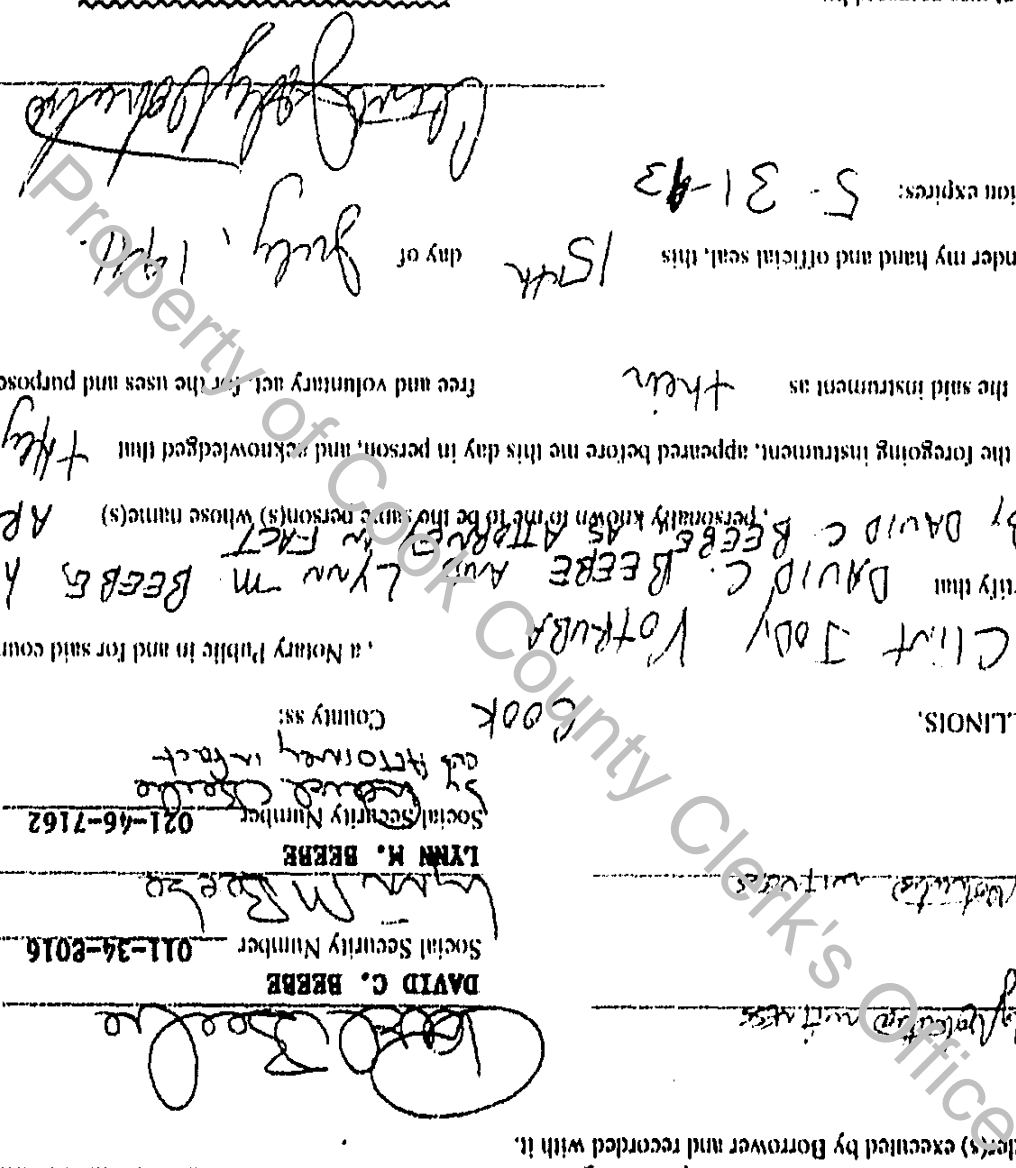 executed by Borrower and recorded with it.
witness
DAVID C. BEEBE
Social Security Number 011-34-8016
witness Lynn M Beebe
LYNN M. BEEBE
Social Security Number 021-46-7162
By David C Beebe
as Attorney in fact
LLINOIS, COOK County ss:
CLINT JODY VOTRUBA , a Notary Public in and for said coun
rtify that DAVID C. BEEBE AND LYNN M BEEBE,
By DAVID C. BEEBE AS ATTORNEY IN FACT
, personally known to me to be the same person(s) whose name(s) AR
the foregoing instrument, appeared before me this day in person, and acknowledged that they
the said instrument as their free and voluntary act, for the uses and purpose
nder my hand and official seal, this 15th day of July,
tion expires: 5-31-93
Property of Cook County Clerk's Office